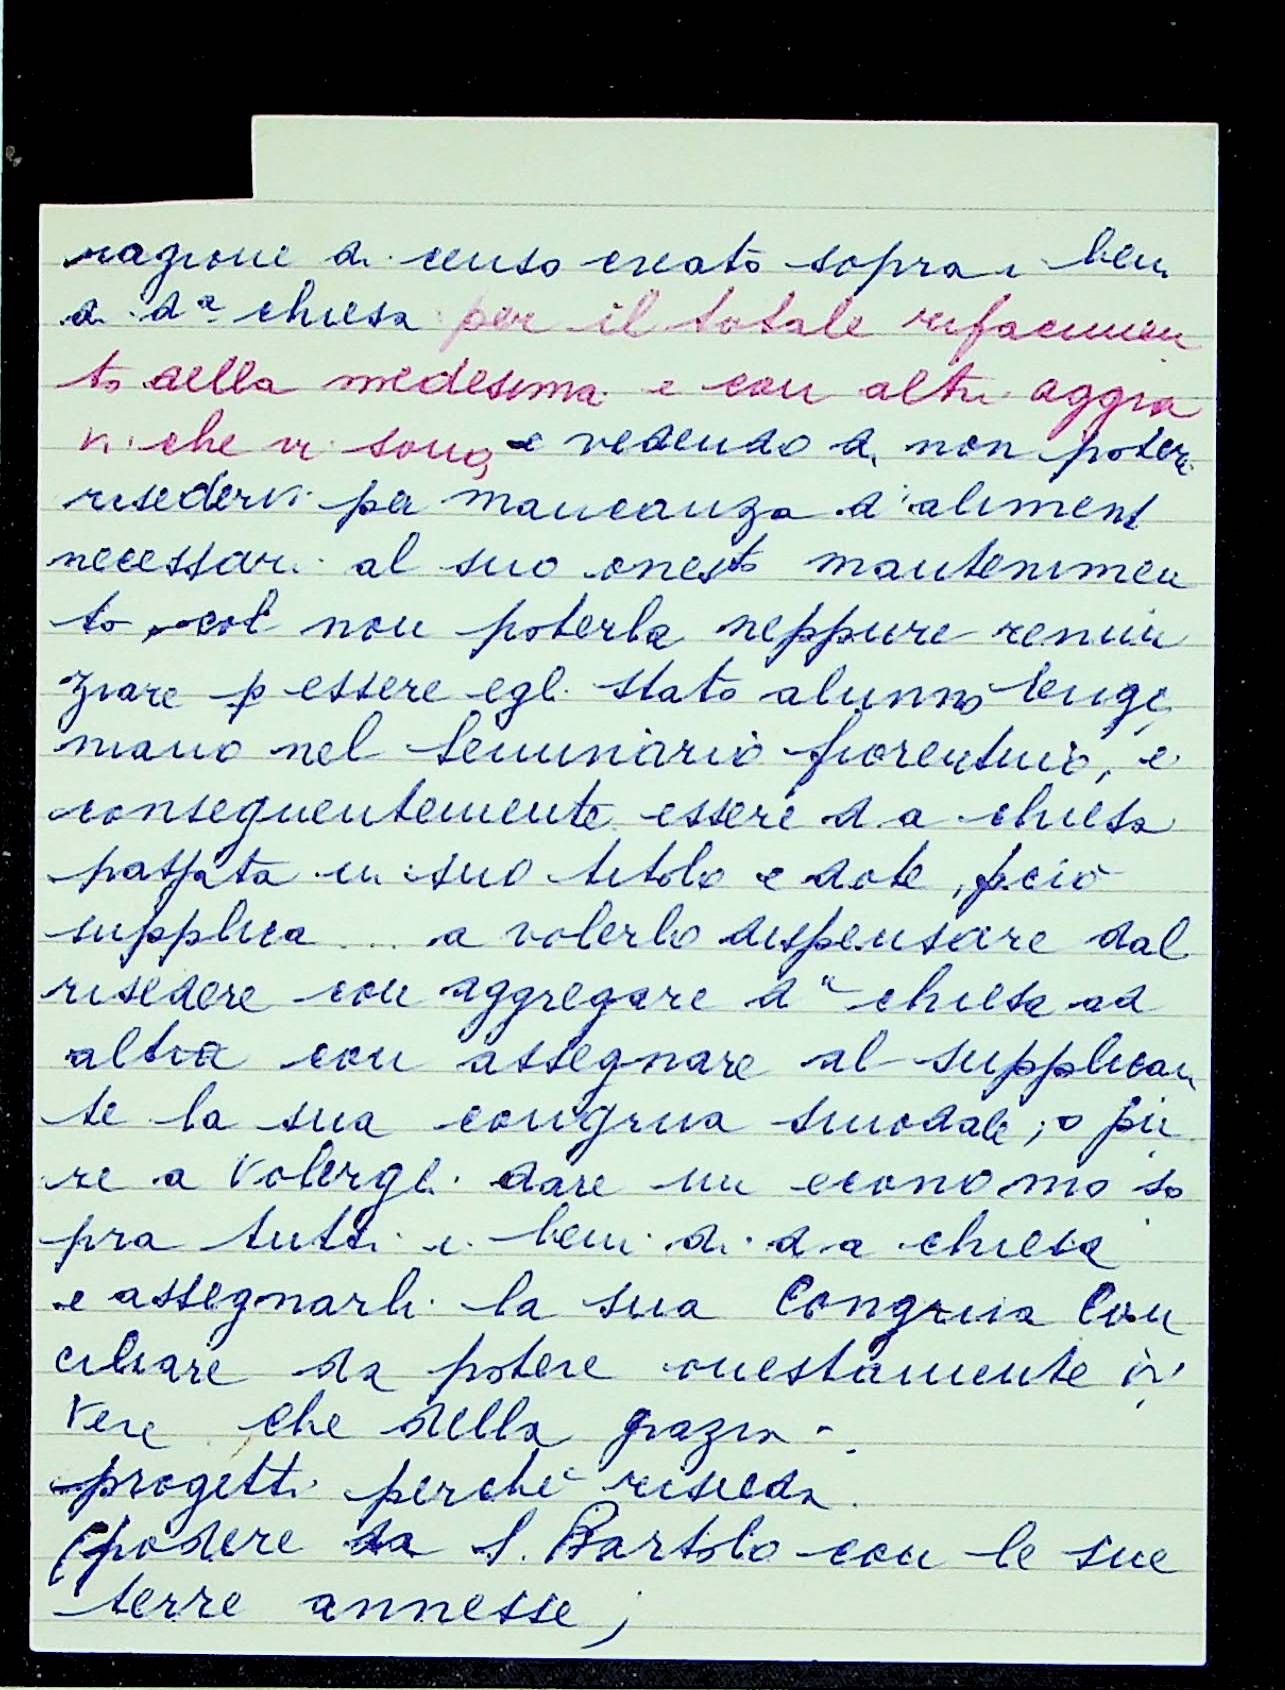 ragione di censo creato sopra i beni
di d.ª chiesa per il totale rifacimen
to della medesima e con altri aggra
vi che vi sono, e vedendo di non poter
risedervi per mancanza d'alimenti
necessari al suo onesto mantenimen
to, col non poterla neppure renun
ziare p essere egli stato alunno
mano nel Seminario fiorentino, e
conseguentemente essere d.a chiesa
passata in suo titolo e dote, pciò
supplica ... a volerlo dispensare dal
risedere con aggregare d.ª chiesa ad
altra con assegnare al supplican
te la sua congrua sinodale; o pu
re a volergli dare un economo so
pra tutti i beni di d.a chiesa
e assegnarli la sua Congrua Con
ciliare da potere onestamente vi
vere che della grazia -.
progetti perché risieda.
(podere da S. Bartolo con le sue
terre annesse;